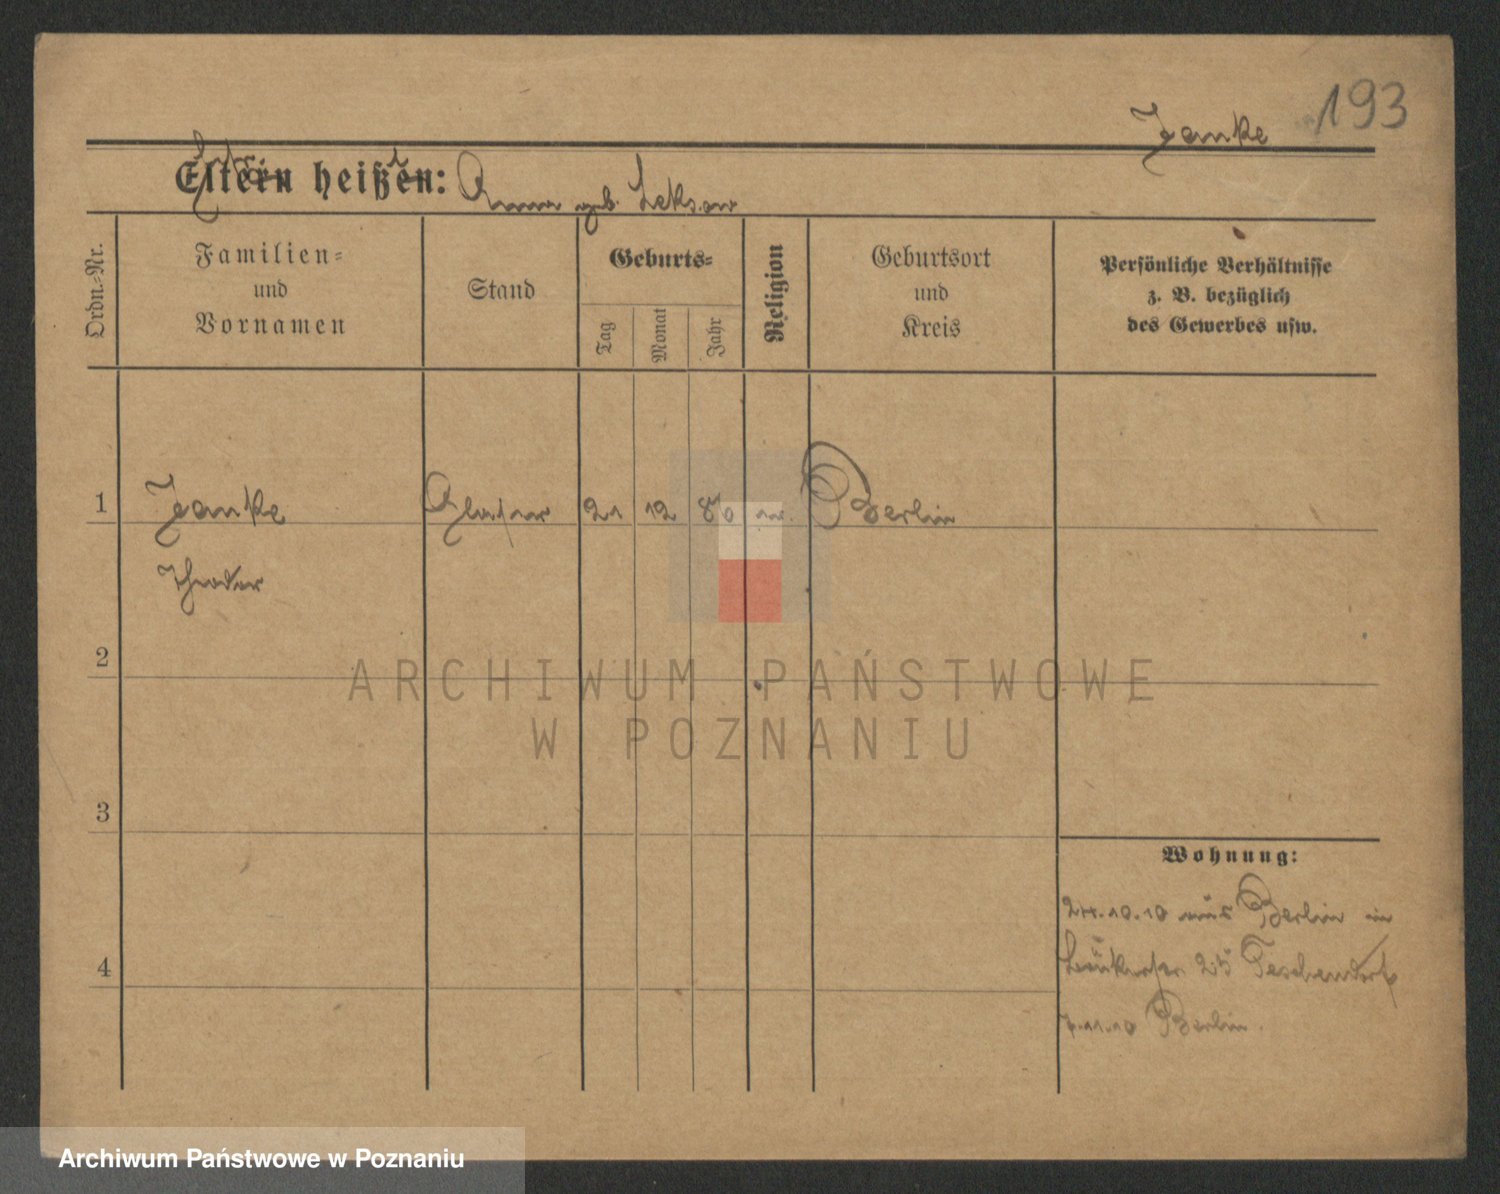 193
Janke
Eltern heißen: Anna geb.
Ordn.-Nr.
Familien-
und
Vornamen
Stand
Geburts-
Tag
Monat
Jahr
Religion
Geburtsort
und
Kreis
Persönliche Verhältnisse
z. B. bezüglich
des Gewerbes usw.
1 Janke Glaser 21 12 80 ev. Berlin
Theodor
2
3
4
Wohnung:
24.10.10 aus Berlin in
25 Teschendorf
7.11.10 Berlin.
ARCHIWUM PAŃSTWOWE
W POZNANIU
Archiwum Państwowe w Poznaniu